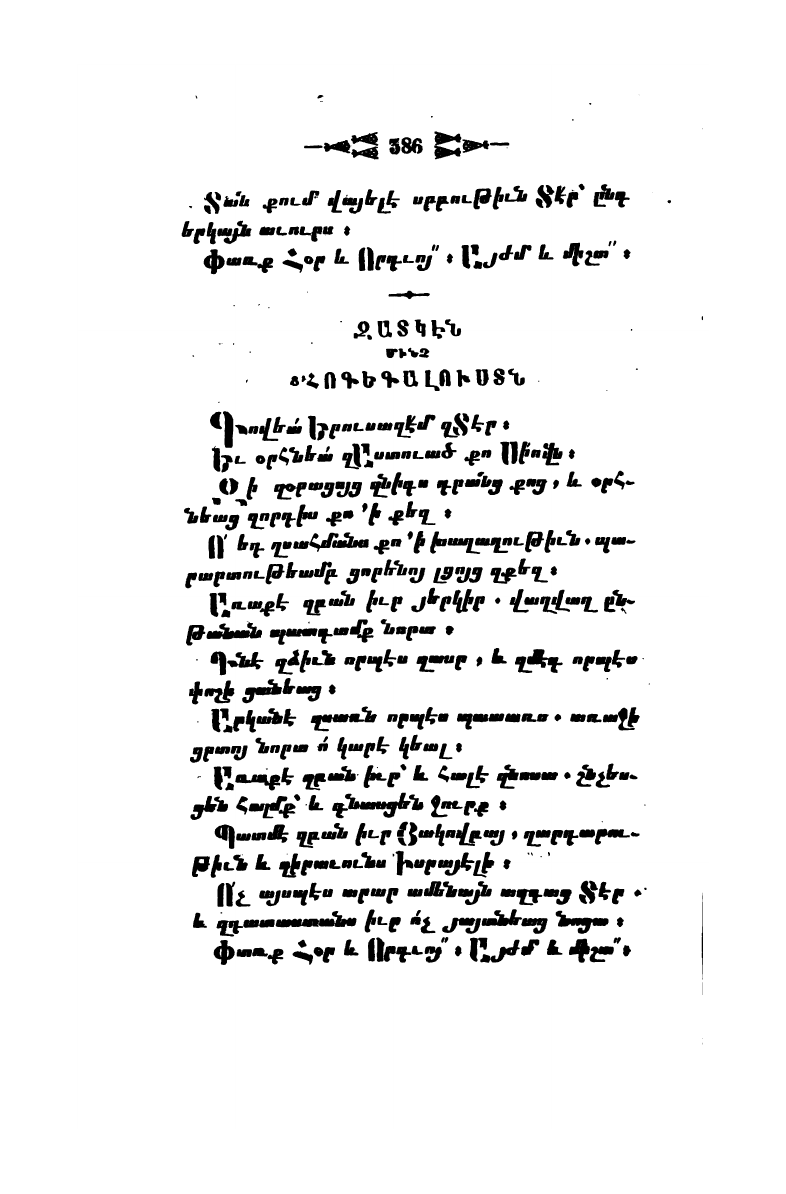 386
Տան քում վայելէ սրբութիւն Տէր՝ ընդ
երկայն աւուրս ։
Փառք Հօր և Որդւոյ՞ ։ Այժմ և միշտ՞ ։
ԶԱՏԿԷՆ
ՄԻՆՉ
Ց՚ՀՈԳԵԳԱԼՈՒՍՏՆ
Գովեա՛ Երուսաղէմ զՏէր ։
Եւ օրհնեա՛ զԱստուած քո Սիովն ։
Օի զօրացոյց զնիգս դրանց քոց , և օրհ-
նեաց զորդիս քո ՚ի քեզ ։
Ո՛ եդ զսահմանս քո ՚ի խաղաղութիւն . պա-
րարտութեամբ ցորենոյ լցոյց զքեզ ։
Առաքէ զբան իւր յերկիր . վաղվաղ ըն-
թանան պատգամք նորա ։
Դնէ զձիւն որպէս զասր , և զմէգ որպէս
փոշի ցանեաց ։
Արկանէ զսառն որպէս պատառս . առաջի
ցրտոյ նորա ո՛ կարէ կեալ ։
Առաքէ զբան իւր՝ և հալէ զնոսա . շնչես-
ցեն հողմք՝ և գնասցեն ջուրք ։
Պատմէ զբան իւր Յակովբայ , զարդարու-
թիւն և զիրաւունս Իսրայէլի ։
Ո՛չ այսպէս արար ամենայն ազգաց Տէր .
և զդատաստանս իւր ո՛չ յայտնեաց նոցա ։
Փառք Հօր և Որդւոյ՞ ։ Այժմ և միշտ՞ ։